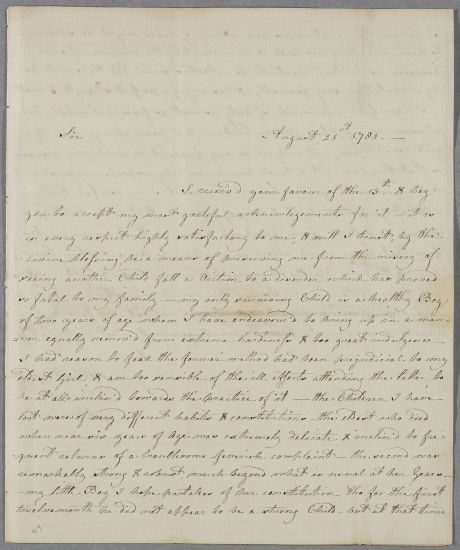 Sir August 21st 1781. —
I receiv'd your favour of the 13th & beg
you to accept my most grateful acknowledgements for it — it is
in every respect highly satisfactory to me, & will I trust, by the
divine blessing, be a means of preserving me from the misery of
seeing another Child fall a Victim to a disorder which has proved
so fatal to my family — my only surviving Child is a healthy Boy
of two years of age whom I have endeavour'd to bring up in a man-
ner equally remov'd from extreme hardiness & too great indulgence
I had reason to fear the former method had been prejudicial to my
eldest Girl, & am too sensible of the ill effects attending the latter to
be at all inclin'd towards the practice of it — the Children I have
lost were of very different habits & constitutions the eldest who died
when near six years of age was extremely delicate & inclin'd to fre-
quent returns of a feverish complaint — the second was
remarkably strong & robust much beyond what is usual at her Years
— my little Boy I hope partakes of her constitution tho for the first
twelvemonth he did not appear to be a strong Child — but at that time